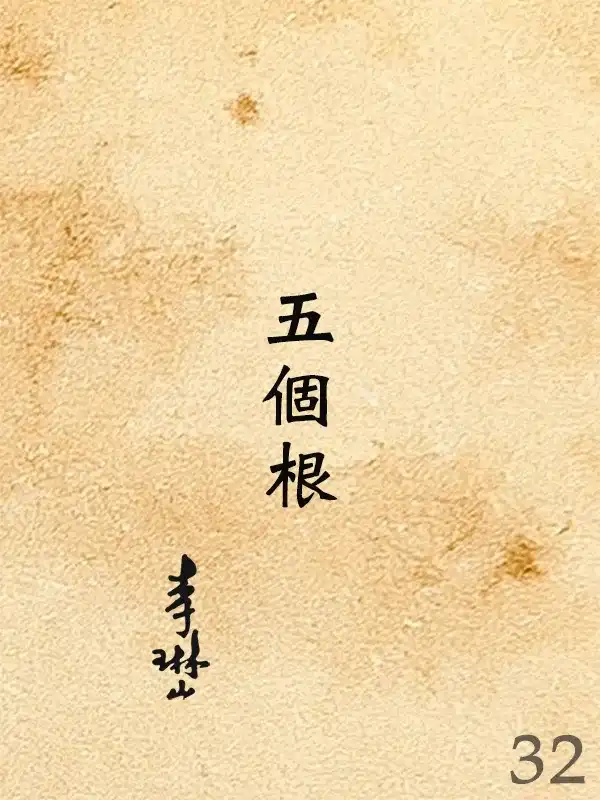 五個根
李琳山
32